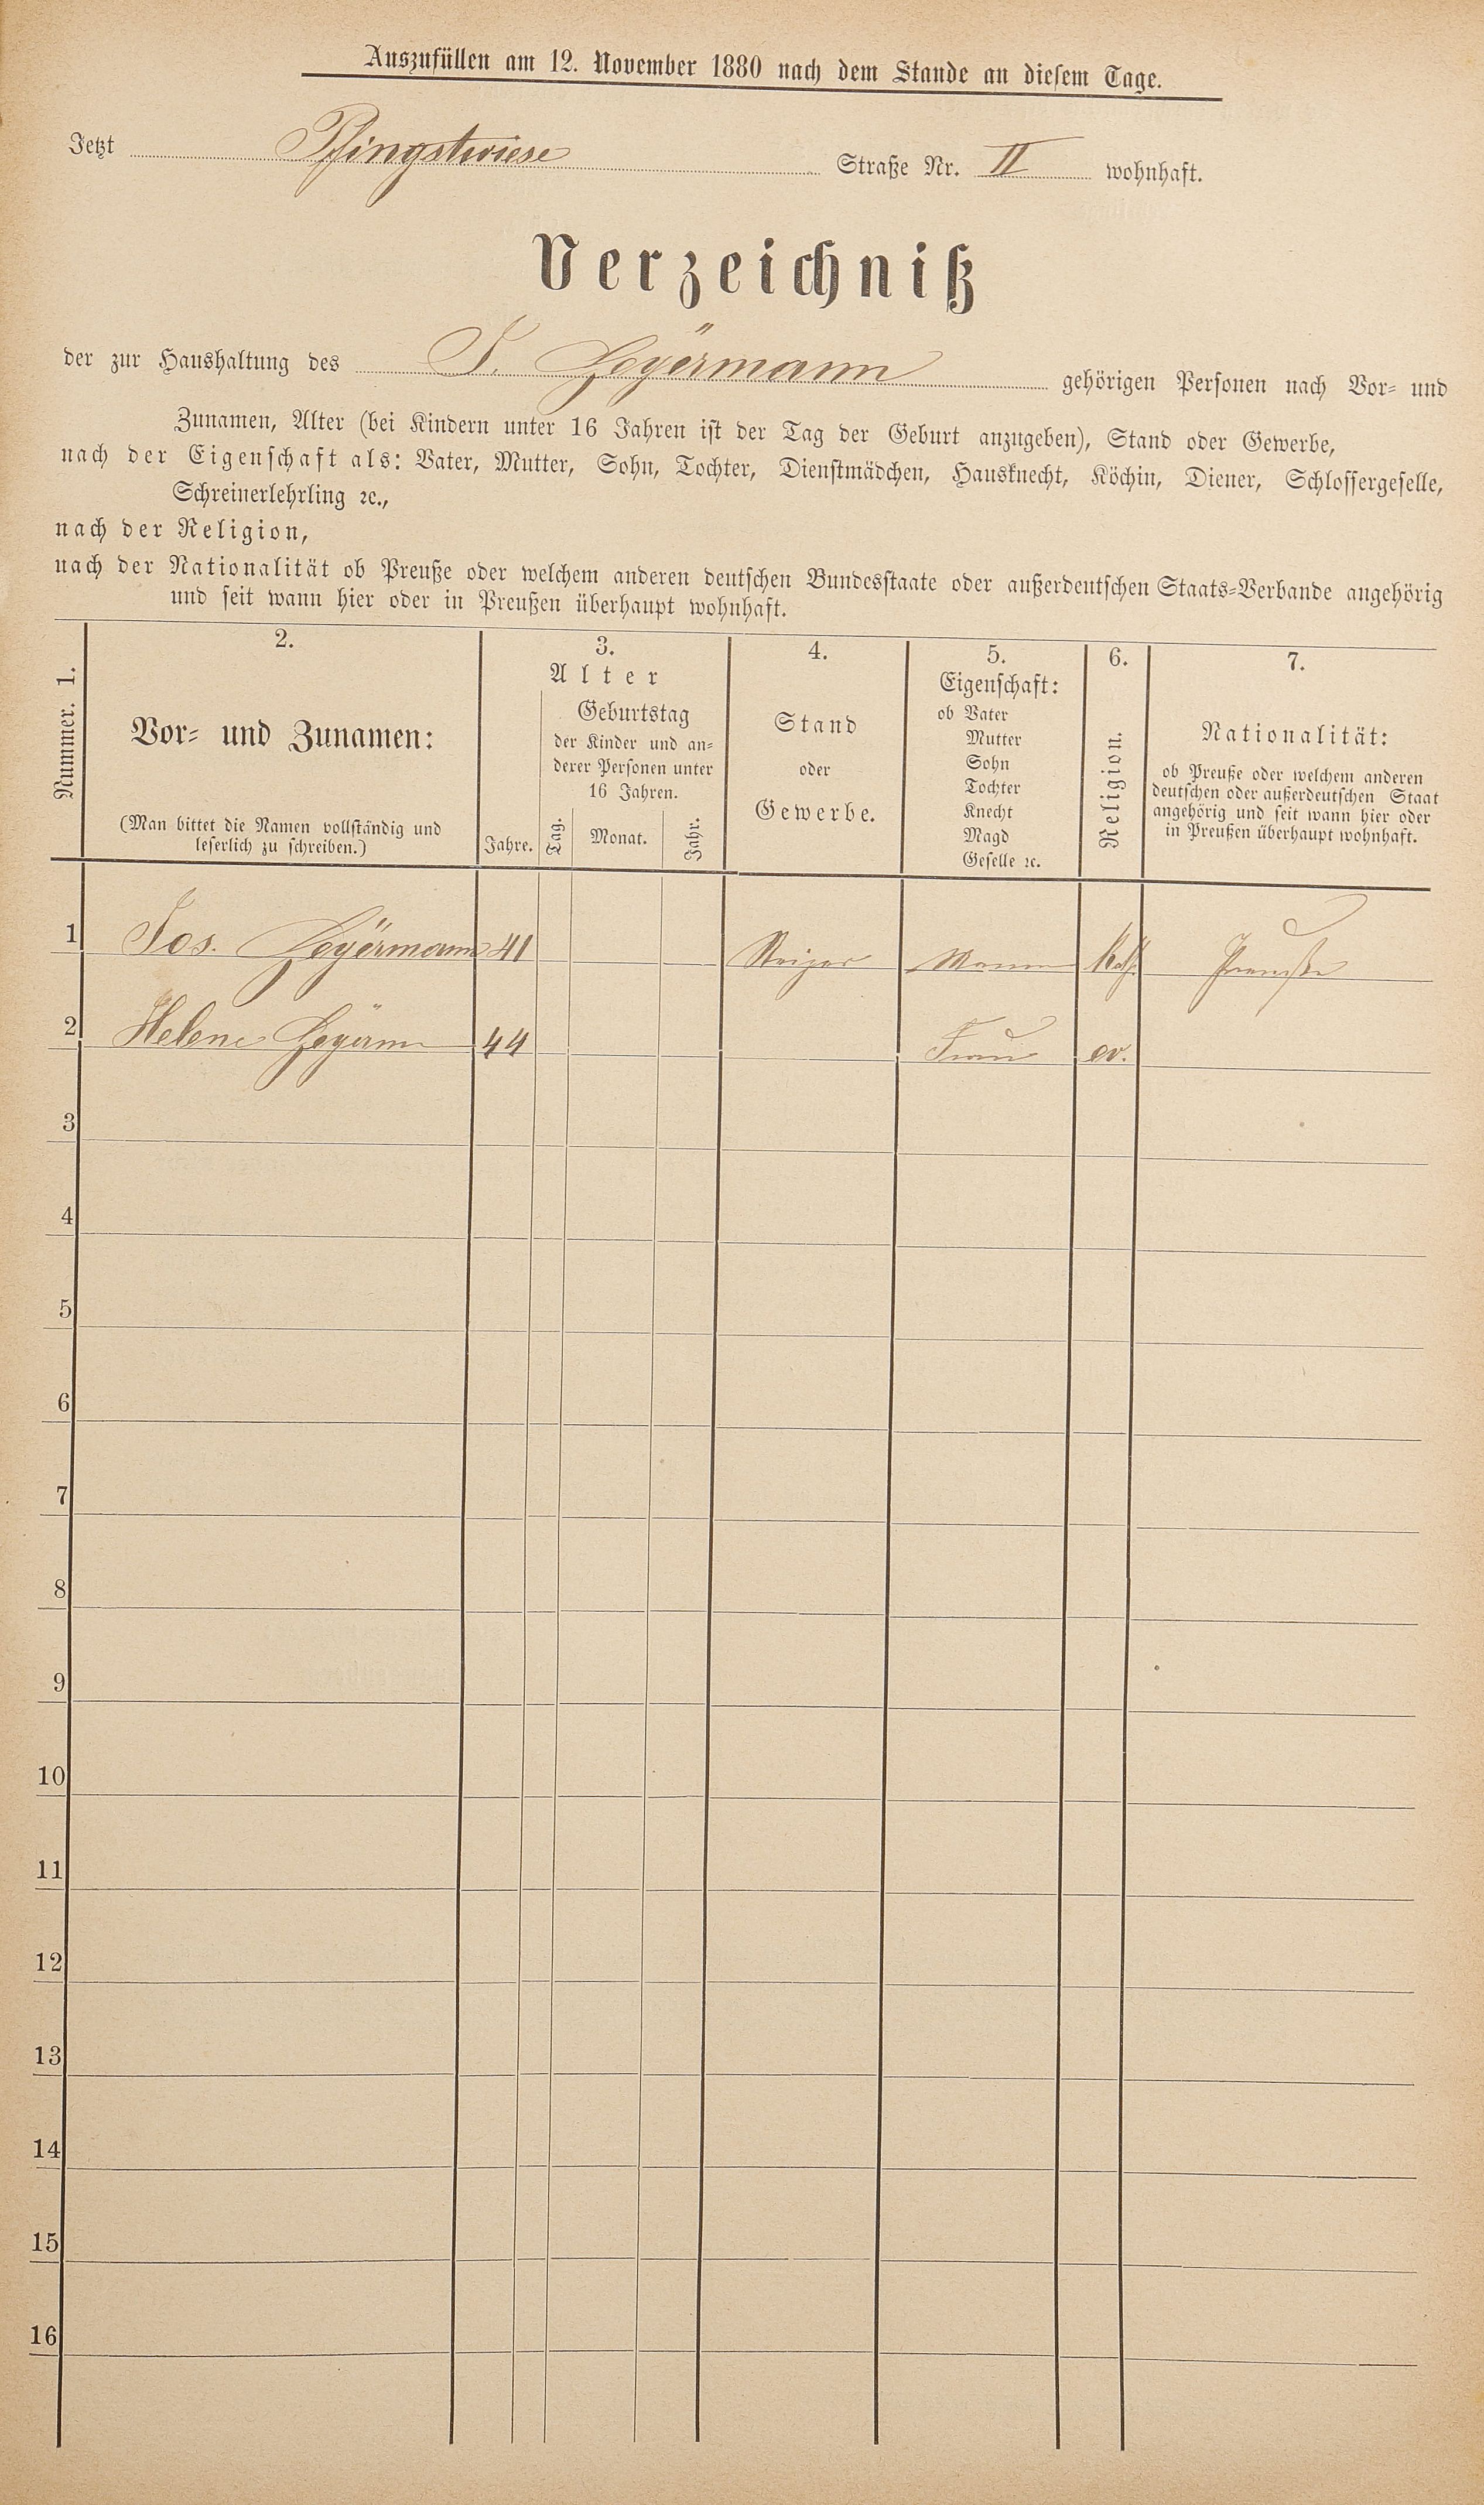 Auszufüllen am 12. November 1880 nach dem Stande an diesem Tage.
Jetzt Pfingstwiese Straße Nr. II wohnhaft.
Verzeichniß
der zur Haushaltung des J. gehörigen Personen nach Vor- und
Zunamen, Alter (bei Kindern unter 16 Jahren ist der Tag der Geburt anzugeben), Stand oder Gewerbe,
nach der Eigenschaft als: Vater, Mutter, Sohn, Tochter, Dienstmädchen, Hausknecht, Köchin, Diener, Schlossergeselle,
Schreinerlehrling ꝛc.,
nach der Religion,
nach der Nationalität ob Preuße oder welchem anderen deutschen Bundesstaate oder außerdeutschen Staats-Verbande angehörig
und seit wann hier oder in Preußen überhaupt wohnhaft.
Nummer. 1.
2.
Vor- und Zunamen:
(Man bittet die Namen vollständig und
leserlich zu schreiben.)
3.
Alter
Jahre.
Geburtstag
der Kinder und an-
derer Personen unter
16 Jahren.
Tag. Monat. Jahr.
4.
Stand
oder
Gewerbe.
5.
Eigenschaft:
ob Vater
Mutter
Sohn
Tochter
Knecht
Magd
Geselle ꝛc.
6.
Religion.
7.
Nationalität:
ob Preuße oder welchem anderen
deutschen oder außerdeutschen Staat
angehörig und seit wann hier oder
in Preußen überhaupt wohnhaft.
1 Jos. 41 Steiger Mann Kath. Preuße
2 Helene 44 Frau ev.
3
4
5
6
7
8
9
10
11
12
13
14
15
16